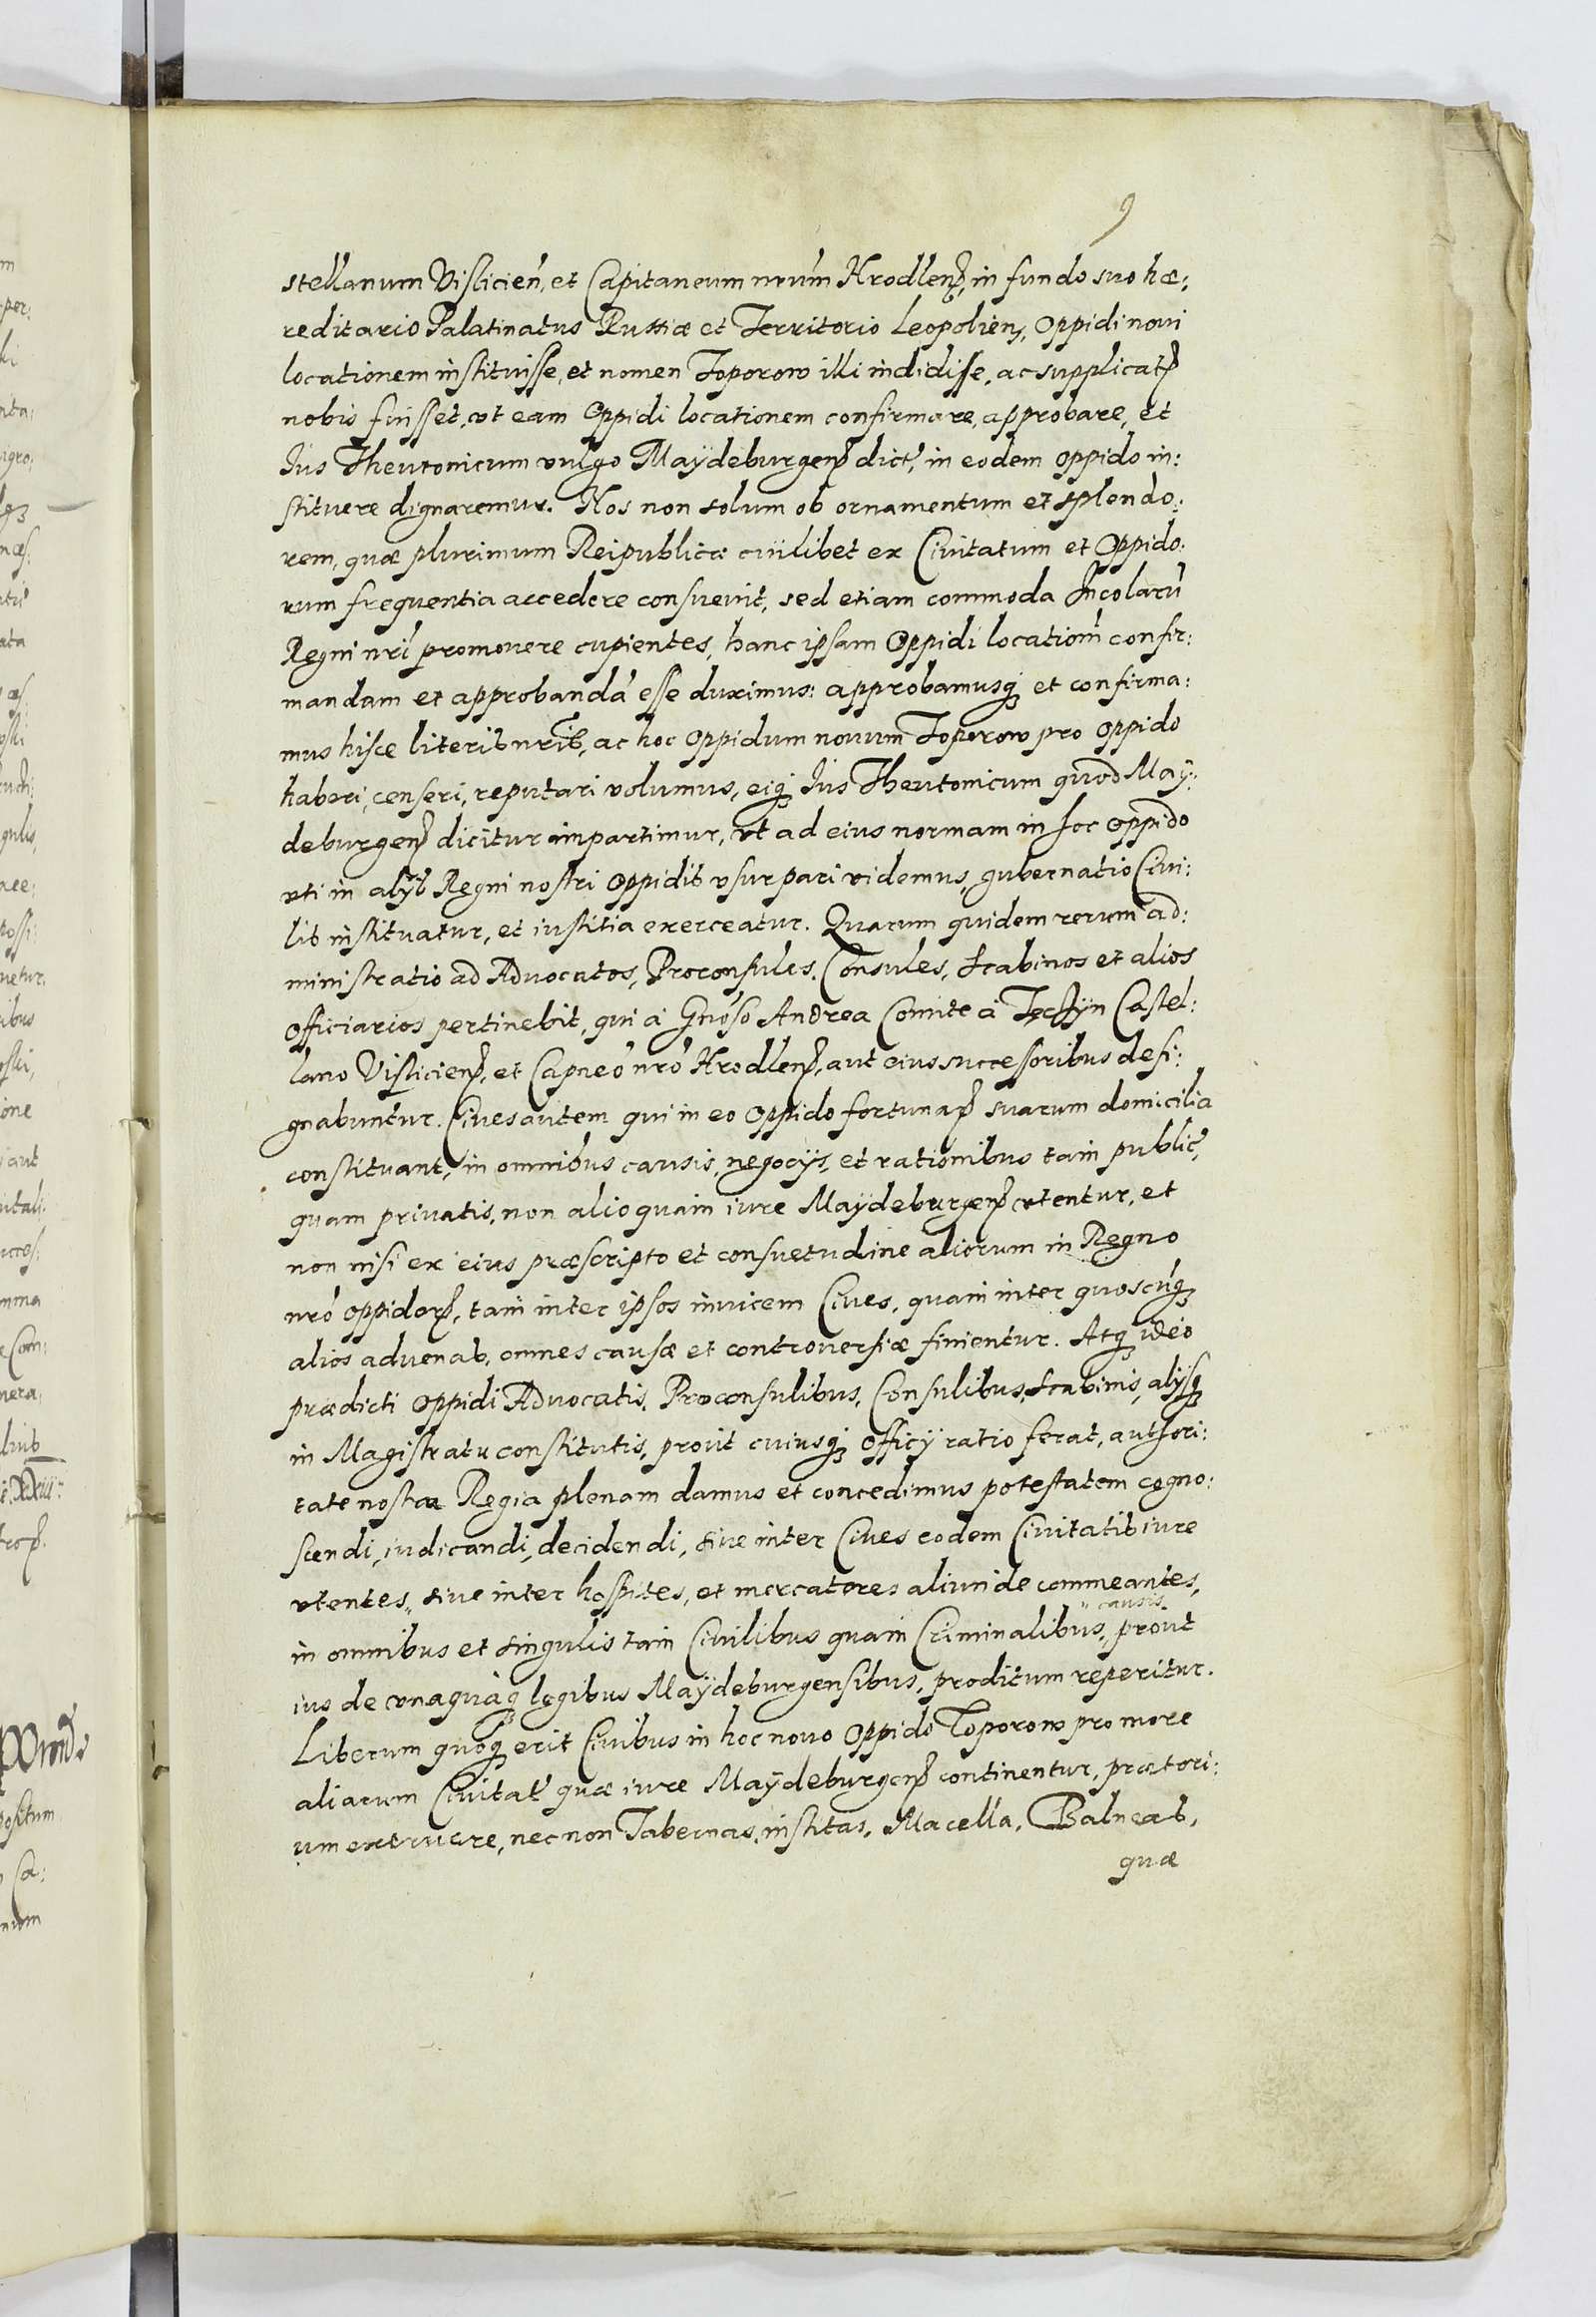 9
stellanum Vislicieñ, et Capitaneum nrũm Hrodleñ, in fundo suo hæ:
reditario Palatinatus Russiæ et Territorio Leopolieñ, Oppidi noui
locationem instituisse, et nomen Toporow illi indidisse, ac supplicatꝭ
nobis fuisset, vt eam Oppidi locationem confirmare, approbare, et
Ius Theutonicum vulgo Maÿdeburgenꝭ dict', in eodem oppido in:
stituere dignaremur. Nos non solum ob ornamentum et splendo:
rem, quæ plurimum Reipublicæ cuilibet ex Ciuitatum et Oppido:
rum frequentia accedere consueuit, sed etiam commoda Incolarũ
Regni nrĩ promouere cupientes, hanc ipsam Oppidi locatiom̃ confir:
mandam et approbandã esse duximus: approbamusq₃ et confirma:
mus hisce literis nrĩs, ac hoc oppidum nouum Toporow pro oppido
haberi, censeri, reputari volumus, eiq₃ Ius Theutonicum quod Maÿ:
deburgenꝭ dicitur impartimur, vt ad eius normam in hoc oppido
vti in alÿs Regni nostri oppidis vsurpari videmus, gubernatio Ciui:
lis instituatur, et iustitia exerceatur. Quarum quidem rerum ad:
ministratio ad Aduocatos, Proconsules, Consules, Scabinos et alios
officiarios pertinebit, qui à Gnõso Andrea Comite à Techÿn Castel:
lano Vislicienꝭ, et Capneõ nrõ Hrodlenꝭ, aut eius successoribus desi:
gnabuntur. Ciues autem qui in eo oppido fortunaꝝ suarum domicilia
constituant, in omnibus causis, negocÿs, et rationibus tam public',
quam priuatis, non alio quam iure Maÿdeburgenꝭ vtentur, et
non nisi ex eius præscripto et consuetudine aliorum in Regno
nrõ oppidoꝝ, tam inter ipsos inuicem Ciues, quam inter quoscũq₃
alios aduenas, omnes causæ et controuersiæ finientur. Atq₃ ideo
prædicti oppidi Aduocatis, Proconsulibus, Consulibus, Scabinis, alÿsq₃
in Magistratu constitutis, prout cuiusq₃ officÿ ratio ferat, authori:
tate nostra Regia plenam damus et concedimus potestatem cogno:
scendi, iudicandi, decidendi, siue inter Ciues eodem Ciuitatis iure
vtentes, siue inter hospites, et mercatores aliunde commeantes,
causis
in omnibus et singulis tam Ciuilibus quam Criminalibus, prout
ius de vnaquaq₃ legibus Maÿdeburgensibus, proditum reperitur.
Liberum quoq₃ erit Ciuibus in hoc nouo Oppido Toporow pro more
aliarum Ciuitat' quæ iure Maÿdeburgenꝭ continentur, prætori:
um extruere, nec non Tabernas, institas, Macella, Balneas,
quæ